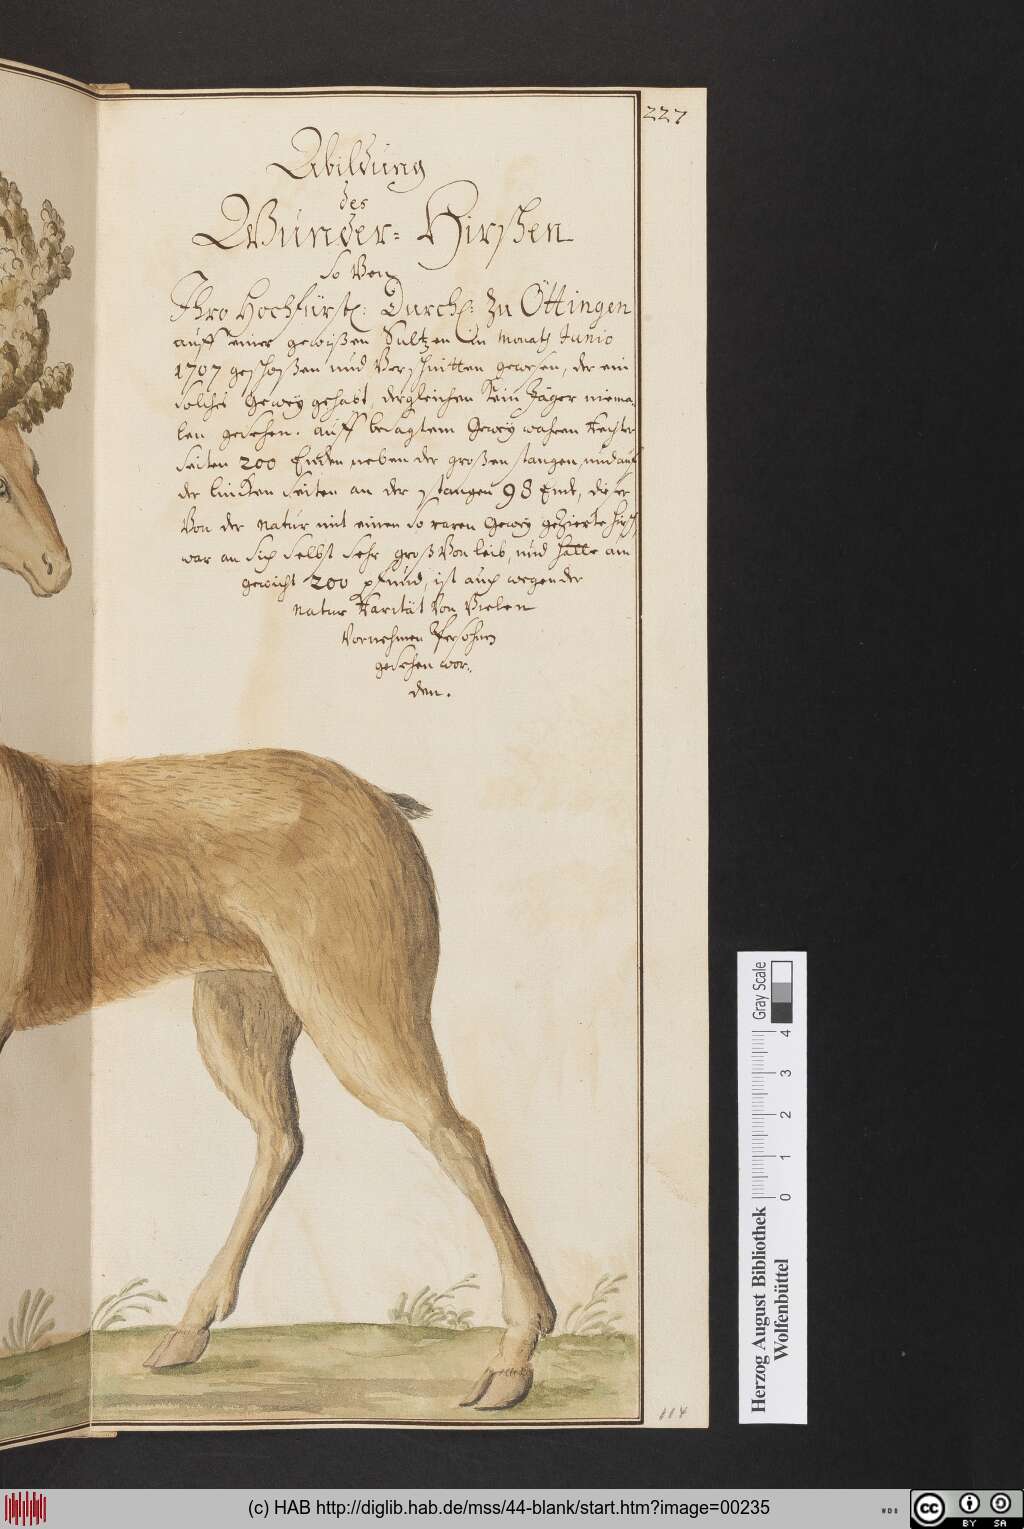 227
Abildung
des
Wunder= Hirschen
so Von
Ihro Hochfürstl: Durchl: zu Öttingen
auff einer gewißen Sultzen in Monath Junio
1707 geschoßen und Verschnitten gewesen, der ein
solches Geweÿ gehabt, dergleichen kein Jäger niema=
len gesehen. auff besagtem Geweÿ wahren Rechter
seiten 200 Enden neben der großen stangen, und auf
der lincken seiten an der stangen 98 Ende, dieser
Von der Natur mit einen so raren Geweÿ gezierte Hirsch
war an sich selbst sehr groß Von leib, und hatte am
gewicht 200 pfund, ist auch wegen der
Natur Rarität Von Vielen
Vornehmen Persohnen
gesehen wor=
den.
114
Gray Scale
0 1 2 3 4
Herzog August Bibliothek
Wolfenbüttel
(c) HAB http://diglib.hab.de/mss/44-blank/start.htm?image=00235
WDB
cc BY SA